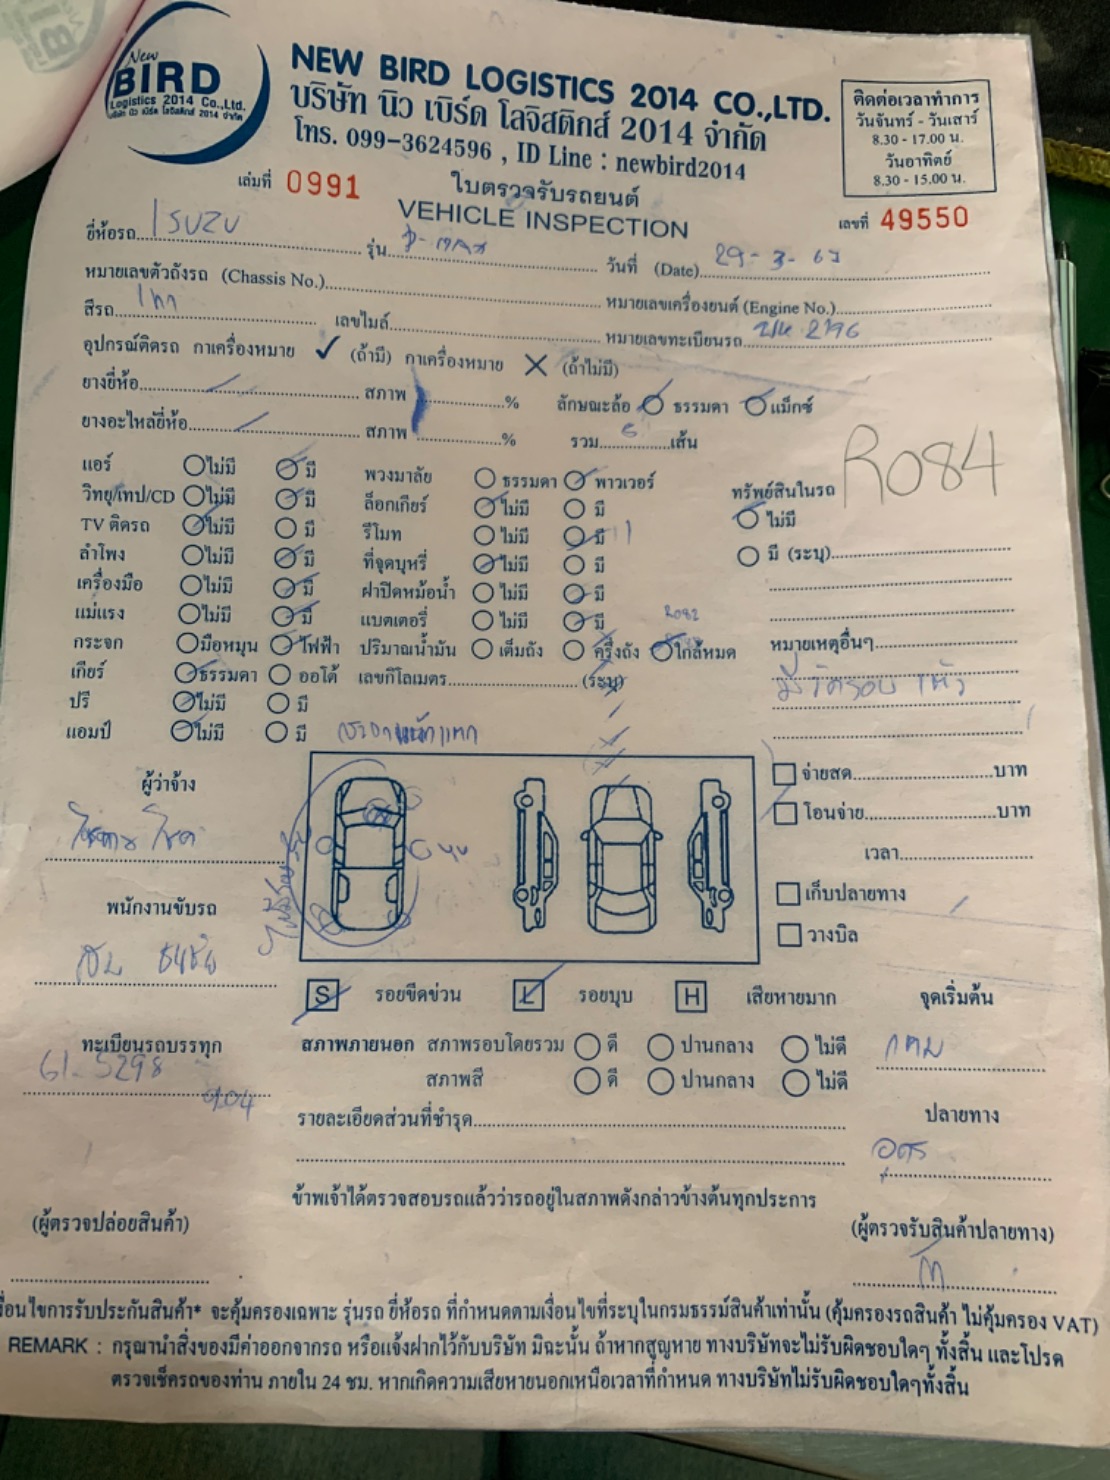 New
BIRD
Logistics 2014 Co.,Ltd.
บริษัท นิว เบิร์ด โลจิสติกส์ 2014 จำกัด
NEW BIRD LOGISTICS 2014 CO.,LTD.
บริษัท นิว เบิร์ด โลจิสติกส์ 2014 จำกัด
โทร. 099-3624596 , ID Line : newbird2014
ติดต่อเวลาทำการ
วันจันทร์ - วันเสาร์
8.30 - 17.00 น.
วันอาทิตย์
8.30 - 15.00 น.
เล่มที่ 0991
ใบตรวจรับรถยนต์
VEHICLE INSPECTION
เลขที่ 49550
ยี่ห้อรถ ISUZU รุ่น วันที่ (Date) 29-3-67
หมายเลขตัวถังรถ (Chassis No.) หมายเลขเครื่องยนต์ (Engine No.)
สีรถ เทา เลขไมล์ หมายเลขทะเบียนรถ 2796
อุปกรณ์ติดรถ กาเครื่องหมาย ✓ (ถ้ามี) กาเครื่องหมาย ✕ (ถ้าไม่มี)
ยางยี่ห้อ สภาพ % ลักษณะล้อ ธรรมดา แม็กซ์
ยางอะไหล่ยี่ห้อ สภาพ % รวม 5 เส้น
R084
แอร์ ไม่มี มี พวงมาลัย ธรรมดา พาวเวอร์
วิทยุ/เทป/CD ไม่มี มี ล็อกเกียร์ ไม่มี มี
ทรัพย์สินในรถ
TV ติดรถ ไม่มี มี รีโมท ไม่มี มี
ไม่มี
ลำโพง ไม่มี มี ที่จุดบุหรี่ ไม่มี มี
มี (ระบุ)
เครื่องมือ ไม่มี มี ฝาปิดหม้อน้ำ ไม่มี มี
แม่แรง ไม่มี มี แบตเตอรี่ ไม่มี มี
R082
กระจก มือหมุน ไฟฟ้า ปริมาณน้ำมัน เต็มถัง ครึ่งถัง ใกล้หมด
หมายเหตุอื่นๆ
เกียร์ ธรรมดา ออโต้ เลขกิโลเมตร (ระบุ)
ปรี ไม่มี มี
แอมป์ ไม่มี มี
ผู้ว่าจ้าง
จ่ายสด บาท
โอนจ่าย บาท
เวลา
พนักงานขับรถ
เก็บปลายทาง
วางบิล
S รอยขีดข่วน L รอยบุบ H เสียหายมาก
จุดเริ่มต้น
กทม
ทะเบียนรถบรรทุก
61-5298
904
สภาพภายนอก สภาพรอบโดยรวม ดี ปานกลาง ไม่ดี
สภาพสี ดี ปานกลาง ไม่ดี
รายละเอียดส่วนที่ชำรุด
ปลายทาง
อุดร
ข้าพเจ้าได้ตรวจสอบรถแล้วว่ารถอยู่ในสภาพดังกล่าวข้างต้นทุกประการ
(ผู้ตรวจปล่อยสินค้า)
(ผู้ตรวจรับสินค้าปลายทาง)
งื่อนไขการรับประกันสินค้า* จะคุ้มครองเฉพาะ รุ่นรถ ยี่ห้อรถ ที่กำหนดตามเงื่อนไขที่ระบุในกรมธรรม์สินค้าเท่านั้น (คุ้มครองรถสินค้า ไม่คุ้มครอง VAT)
REMARK : กรุณานำสิ่งของมีค่าออกจากรถ หรือแจ้งฝากไว้กับบริษัท มิฉะนั้น ถ้าหากสูญหาย ทางบริษัทจะไม่รับผิดชอบใดๆ ทั้งสิ้น และโปรด
ตรวจเช็ครถของท่าน ภายใน 24 ชม. หากเกิดความเสียหายนอกเหนือเวลาที่กำหนด ทางบริษัทไม่รับผิดชอบใดๆทั้งสิ้น